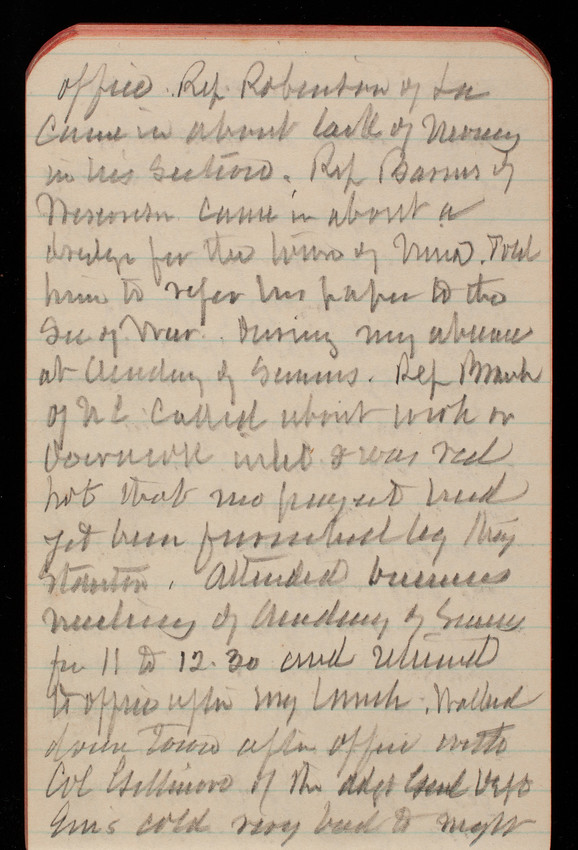 office. Rep. Robertson of La
Came in about lack of money
in his section. Rep Barnes of
Wisconsin came in about a
dredge for the town of. Told
him to refer his paper to the
Sec of War. During my absence
at Academy of Sciences. Rep Branch
of N C called about work on
Ocracoke inlet & was red
hot that no project had
yet been furnished by Maj
Stanton. Attended business
meeting of Academy of Sciences
for 11 to 12.30 and returned
to office after my lunch. Walked
down Town after office with
Col Gillmore of the Adgt Genl Dept
Em's cold very bad to night